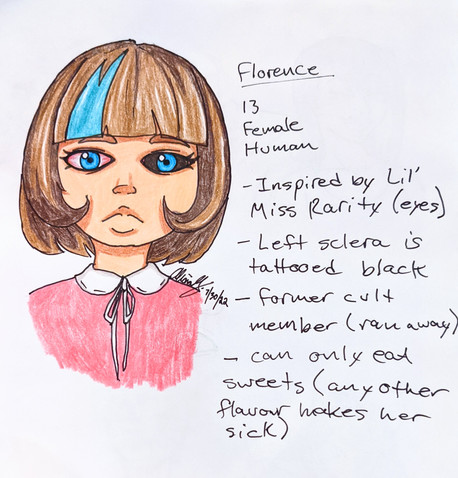 Florence
13
Female
Human
- Inspired by Lil'
Miss Rarity (eyes)
- Left sclera is
tattooed black
- former cult
member (ran away)
- can only eat
sweets (any other
flavour makes her
sick)
7/30/22